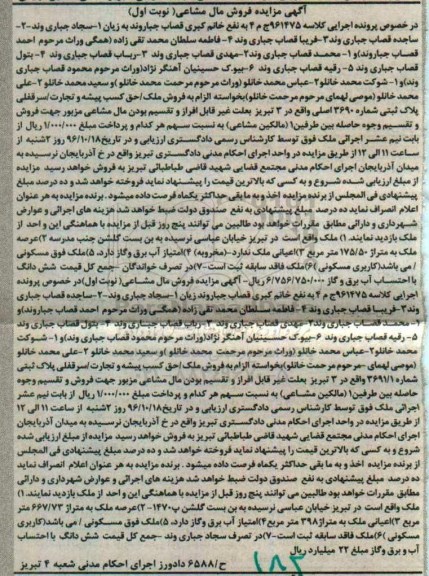 آگهی مزایده فروش مال مشاعی( نوبت اول)
در خصوص پرونده اجرایی کلاسه ۹۶۱۴۷۵ج م ۴ به نفع خانم کبری قصاب جباروند به زیان ۱-سجاد جباری وند-۲-
ساجده قصاب جباری وند۳-فریبا قصاب جباری وند ۴- فاطمه سلطان محمد تقی زاده (همگی وراث مرحوم احمد
قصاب جباروند)و ۱- محمد قصاب جباری وند۲-مهدی قصاب جباری وند ۳- رباب قصاب جباری وند ۴- بتول
قصاب جباری وند ۵- رقیه قصاب جباری وند ۶-بیوک حسینیان آهنگر نژاد(وراث مرحوم محمود قصاب جباری
وند)و۱- شرکت محمد خانلو۲-عباس محمد خانلو (وراث مرحوم مرحمت محمد خانلو) و سعید محمد خانلو ۲-علی
محمد خانلو (موصی لهمای مرحوم مرحمت خانلو)بخواسته الزام به فروش ملک/حق کسب پیشه و تجارت/سرقفلی
پلاک ثبتی شماره ۳۶۹۰ اصلی واقع در ۲ تبریز بعلت غیر قابل افراز و تقسیم بودن مال مشاعی مزبور جهت فروش
و تقسیم وجوه حاصله بین طرفین۱ (مالکین مشاعی) به نسبت سهم هر کدام و پرداخت مبلغ ۱/۰۰۰/۰۰۰ ریال از
بابت نیم عشر اجرائی ملک فوق توسط کارشناس رسمی دادگستری ارزیابی و در تاریخ۹۶/۱۰/۱۸ روز ۲شنبه از
ساعت ۱۱ الی ۱۲ از طریق مزایده در واحد اجرای احکام مدنی دادگستری تبریز واقع در خ آذربایجان نرسیده به
میدان آذربایجان اجرای احکام مدنی مجتمع قضایی شهید قاضی طباطبائی تبریز به فروش خواهد رسید مزایده
از مبلغ ارزیابی شده شروع و به کسی که بالاترین قیمت را پیشنهاد نماید فروخته خواهد شد و ده درصد مبلغ
پیشنهادی فی المجلس از برنده مزایده اخذ و به مابقی حداکثر یکماه فرصت داده میشود . برنده مزایده به هر عنوان
اعلام انصراف نماید ده درصد مبلغ پیشنهادی به نفع صندوق دولت ضبط خواهد شد هزینه های اجرائی و عوارض
شهرداری و دارائی مطابق مقررات خواهد بود طالبین می توانند پنج روز قبل از مزایده با هماهنگی این و احد از
ملک بازدید نمایند. ۱) ملک واقع است در تبریز خیابان عباسی نرسیده به بن بست گلشن جنب مدرسه ۲)عرصه
ملک به متراژ ۱۷۵/۵۰ متر مربع ۳)اعیانی ملک ندارد-(مخروبه) ۴)امتیاز آب برق وگاز دارد، ۵)ملک فوق مسکونی
/ می باشد(کاربری مسکونی )۶)ملک فاقد سابقه ثبت است-۷)در تصرف خواندگان -جمع کل قیمت شش دانگ
با احتساب آب و برق وگاز ۶/۷۵۶/۷۵۰/۰۰۰ ریال- آگهی مزایده فروش مال مشاعی( نوبت اول)در خصوص پرونده
اجرایی کلاسه ۹۶۱۴۷۵ج م ۴ به نفع خانم کبری قصاب جباروند زیان ۱-سجاد جباری وند-۲-ساجده قصاب جباری
وند۳-فریبا قصاب جباری وند ۴- فاطمه سلطان محمد تقی زاده (همگی وراث مرحوم احمد قصاب جباروند)و
۱- محمد قصاب جباری وند۲-مهدی قصاب جباری وند ۳- رباب قصاب جباری وند ۴- بتول قصاب جباری وند
۵- رقیه قصاب جباری وند ۶-بیوک حسینیان آهنگر نژاد(وراث مرحوم محمود قصاب جباری وند)و ۱- شرکت
محمد خانلو۲-عباس محمد خانلو (وراث مرحوم مرحمت محمد خانلو) و سعید محمد خانلو ۲-علی محمد خانلو
(موصی لهمای -مرحوم مرحمت خانلو)بخواسته الزام به فروش ملک/حق کسب پیشه و تجارت/سرقفلی پلاک ثبتی
شماره ۳۶۹۱/۱ واقع در ۲ تبریز بعلت غیر قابل افراز و تقسیم بودن مال مشاعی مزبور جهت فروش و تقسیم وجوه
حاصله بین طرفین۱ (مالکین مشاعی) به نسبت سهم هر کدام و پرداخت مبلغ ۱/۰۰۰/۰۰۰ ریال از بابت نیم عشر
اجرائی ملک فوق توسط کارشناس رسمی دادگستری ارزیابی و در تاریخ۹۶/۱۰/۱۸ روز ۲شنبه از ساعت ۱۱ الی ۱۲
از طریق مزایده در واحد اجرای احکام مدنی دادگستری تبریز واقع در خ آذربایجان نرسیده به میدان آذربایجان
اجرای احکام مدنی مجتمع قضایی شهید قاضی طباطبائی تبریز به فروش خواهد رسید مزایده از مبلغ ارزیابی شده
شروع و به کسی که بالاترین قیمت را پیشنهاد نماید فروخته خواهد شد و ده درصد مبلغ پیشنهادی فی المجلس
از برنده مزایده اخذ و به ما بقی حداکثر یکماه فرصت داده میشود . برنده مزایده به هر عنوان اعلام انصراف نماید
ده درصد مبلغ پیشنهادی به نفع صندوق دولت ضبط خواهد شد هزینه های اجرائی و عوارض شهرداری و دارائی
مطابق مقررات خواهد بود طالبین می توانند پنج روز قبل از مزایده با هماهنگی این و احد از ملک بازدید نمایند. ۱)
ملک واقع است در تبریز خیابان عباسی نرسیده به بن بست گلشن پ۱۴۷۰- ۲)عرصه ملک به متراژ ۶۶۷/۷۳ متر
مربع ۳)اعیانی ملک به متراژ۳۹۸ متر مربع۴)امتیاز آب برق وگاز دارد، ۵)ملک فوق مسکونی / می باشد(کاربری
مسکونی )۶)ملک فاقد سابقه ثبت است-۷)در تصرف سجاد جباری وند -جمع کل قیمت شش دانگ با احتساب
آب و برق وگاز مبلغ ۲۲ میلیارد ریال
ح/۶۵۸۸ دادورز اجرای احکام مدنی شعبه ۴ تبریز